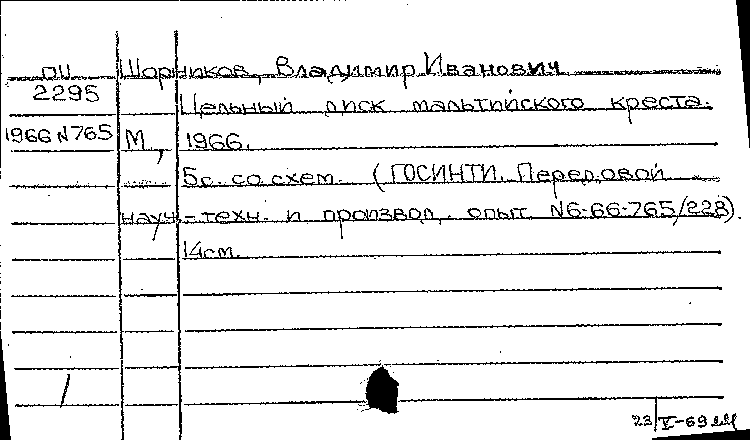 ОП Шорников, Владимир Иванович
2295 Цельный диск мальтийского креста.
1966 N765 М, 1966.
5с. со схем. (ГОСИНТИ. Передовой
науч-техн. и произвол. опыт N6-66-765/22В).
14см.
/
23/V-69